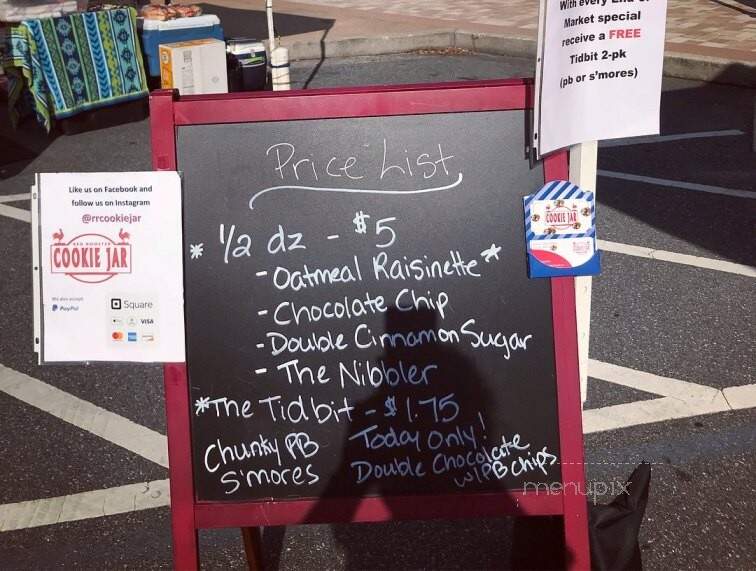 With every End of
Market special
receive a FREE
Tidbit 2-pk
(pb or s'mores)
Like us on Facebook and
follow us on Instagram
@rrcookiejar
RED ROOSTER
COOKIE JAR
We also accept
PayPal
Square
VISA
Price List
* 1/2 dz - $5
- Oatmeal Raisinette *
- Chocolate Chip
- Double Cinnamon Sugar
- The Nibbler
* The Tidbit - $1.75
Chunky PB
S'mores
Today only!
Double Chocolate
w/PB chips
COOKIE JAR
menupix